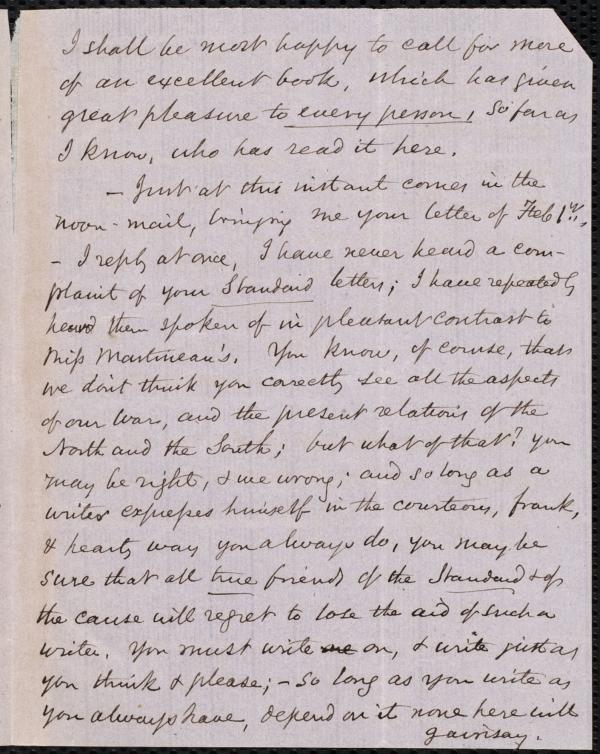 I shall be most happy to call for more
of an excellent book, which has given
great pleasure to every person, so far as
I know, who has read it here.
– Just at this instant comes in the
noon-mail, bringing me your letter of Feb 1st,
– I reply at once, I have never heard a com-
plaint of your Standard letters; I have repeatedly
heard them spoken of in pleasant contrast to
Miss Martineau's. You know, of course, that
we don't think you correctly see all the aspects
of our war, and the present relations of the
North and the South; but what of that? You
may be right, & we wrong; and so long as a
writer expresses himself in the courteous, frank,
& hearty way you always do, you may be
sure that all true friends of the Standard & of
the cause will regret to lose the aid of such a
writer. You must write me on, & write just as
you think & please; – so long as you write as
you always have, depend on it none here will
gainsay.